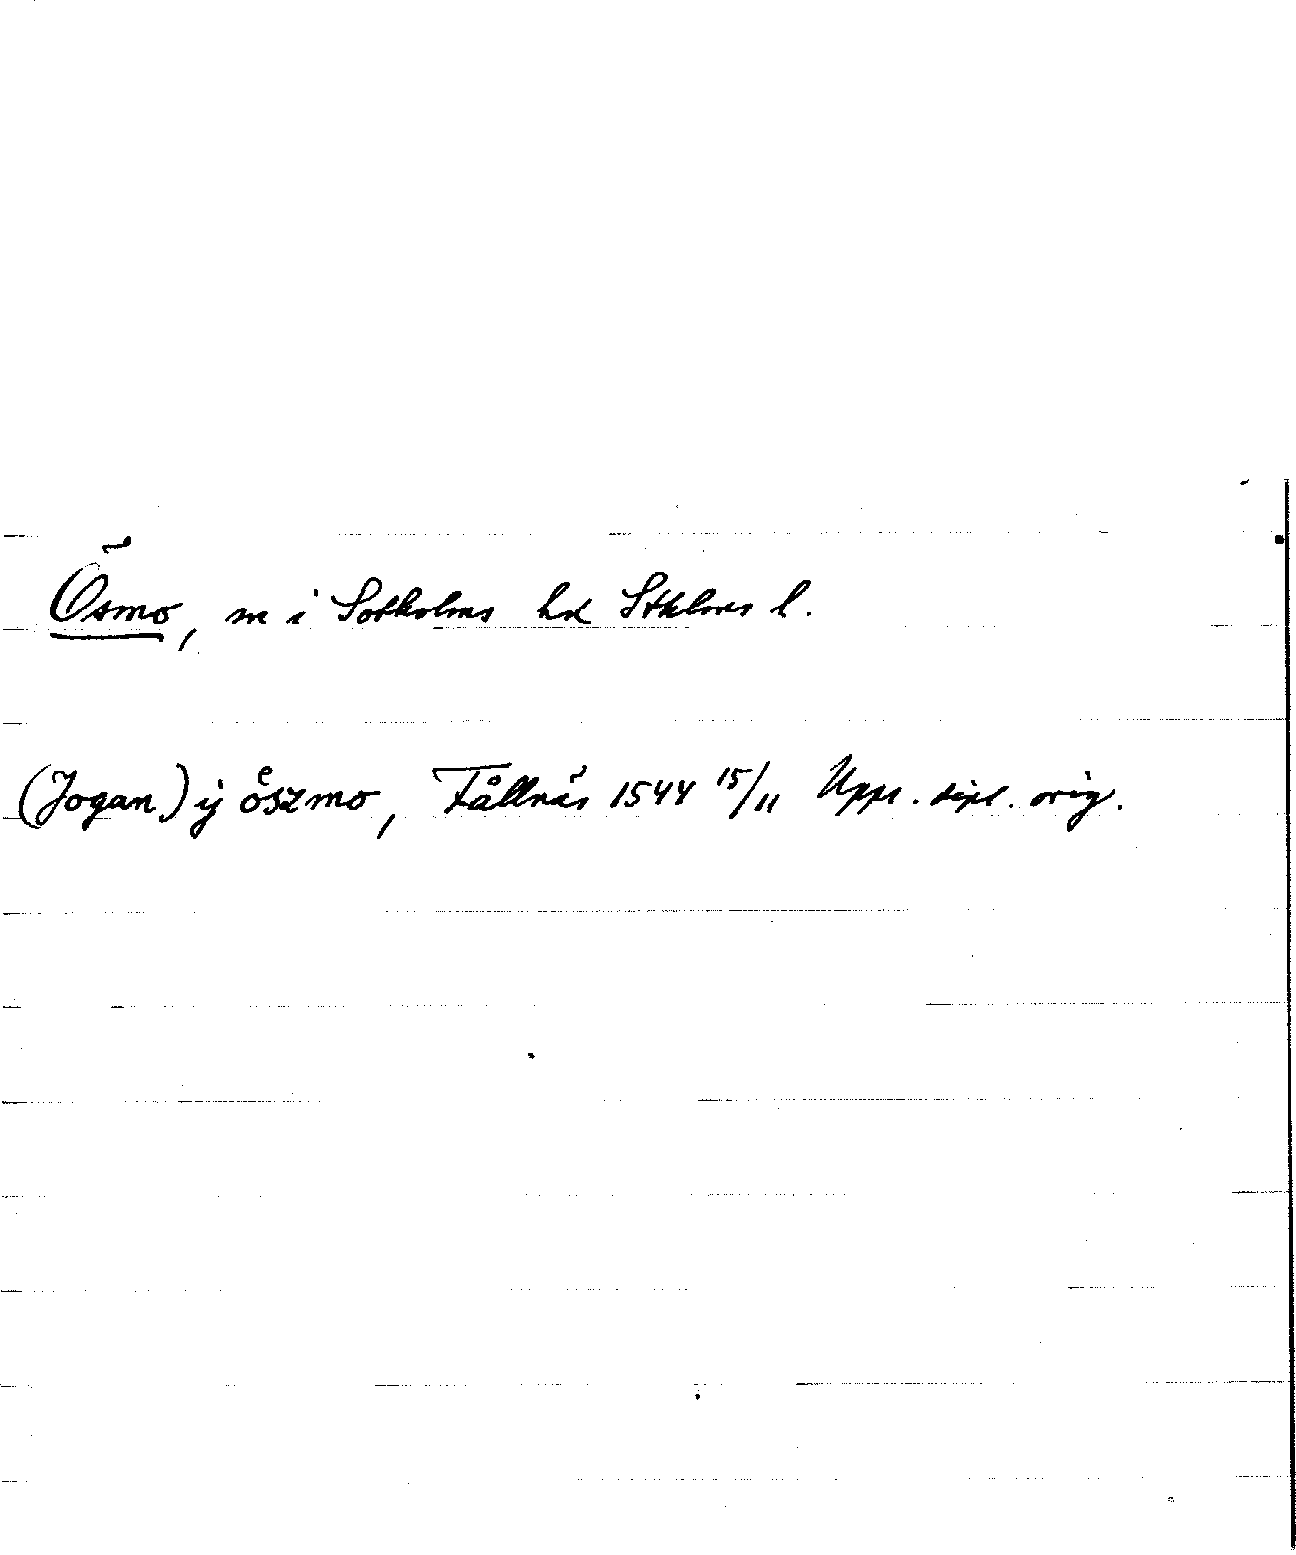 Ösmo, sn i Sotholms hd Sthlms l.
(Jogan) ij oͤszmo, Fållnäs 1544 15/11 Upps. dipl. orig.